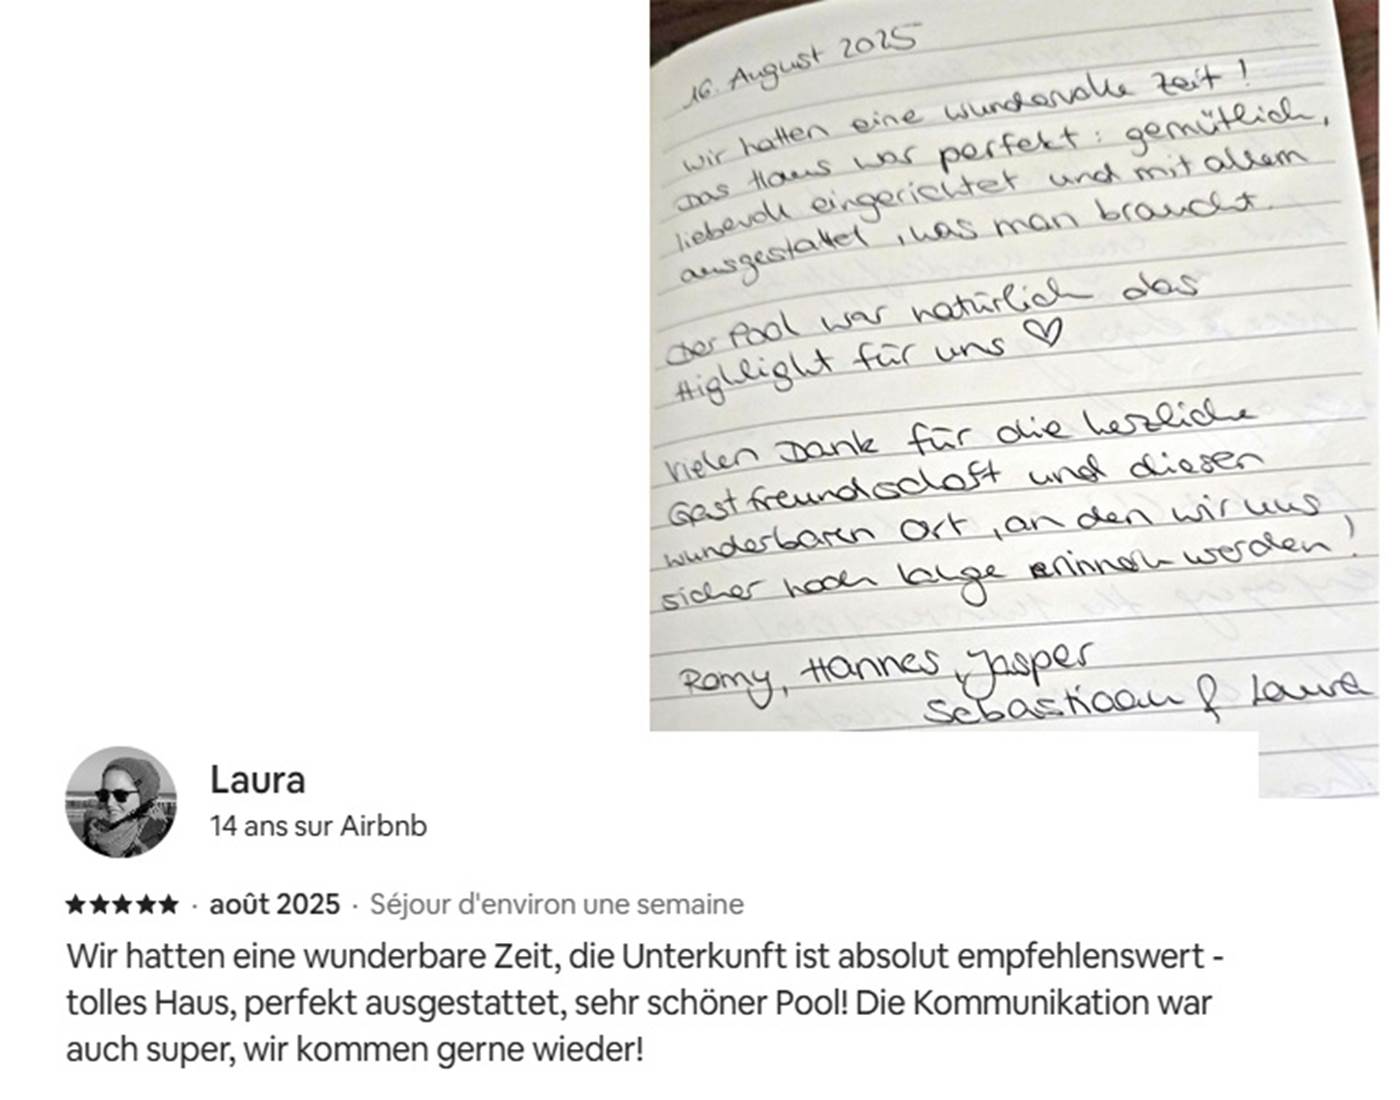 16. August 2025
Wir hatten eine wundervolle Zeit!
Das Haus war perfekt: gemütlich,
liebevoll eingerichtet und mit allem
ausgestattet, was man braucht.
Der Pool war natürlich das
Highlight für uns ♡
Vielen Dank für die herzliche
Gastfreundschaft und diesen
wunderbaren Ort, an den wir uns
sicher noch lange erinnern werden!
Romy, Hannes, Jasper
Sebastiaan & Laura
Laura
14 ans sur Airbnb
★★★★★ · août 2025 · Séjour d'environ une semaine
Wir hatten eine wunderbare Zeit, die Unterkunft ist absolut empfehlenswert -
tolles Haus, perfekt ausgestattet, sehr schöner Pool! Die Kommunikation war
auch super, wir kommen gerne wieder!